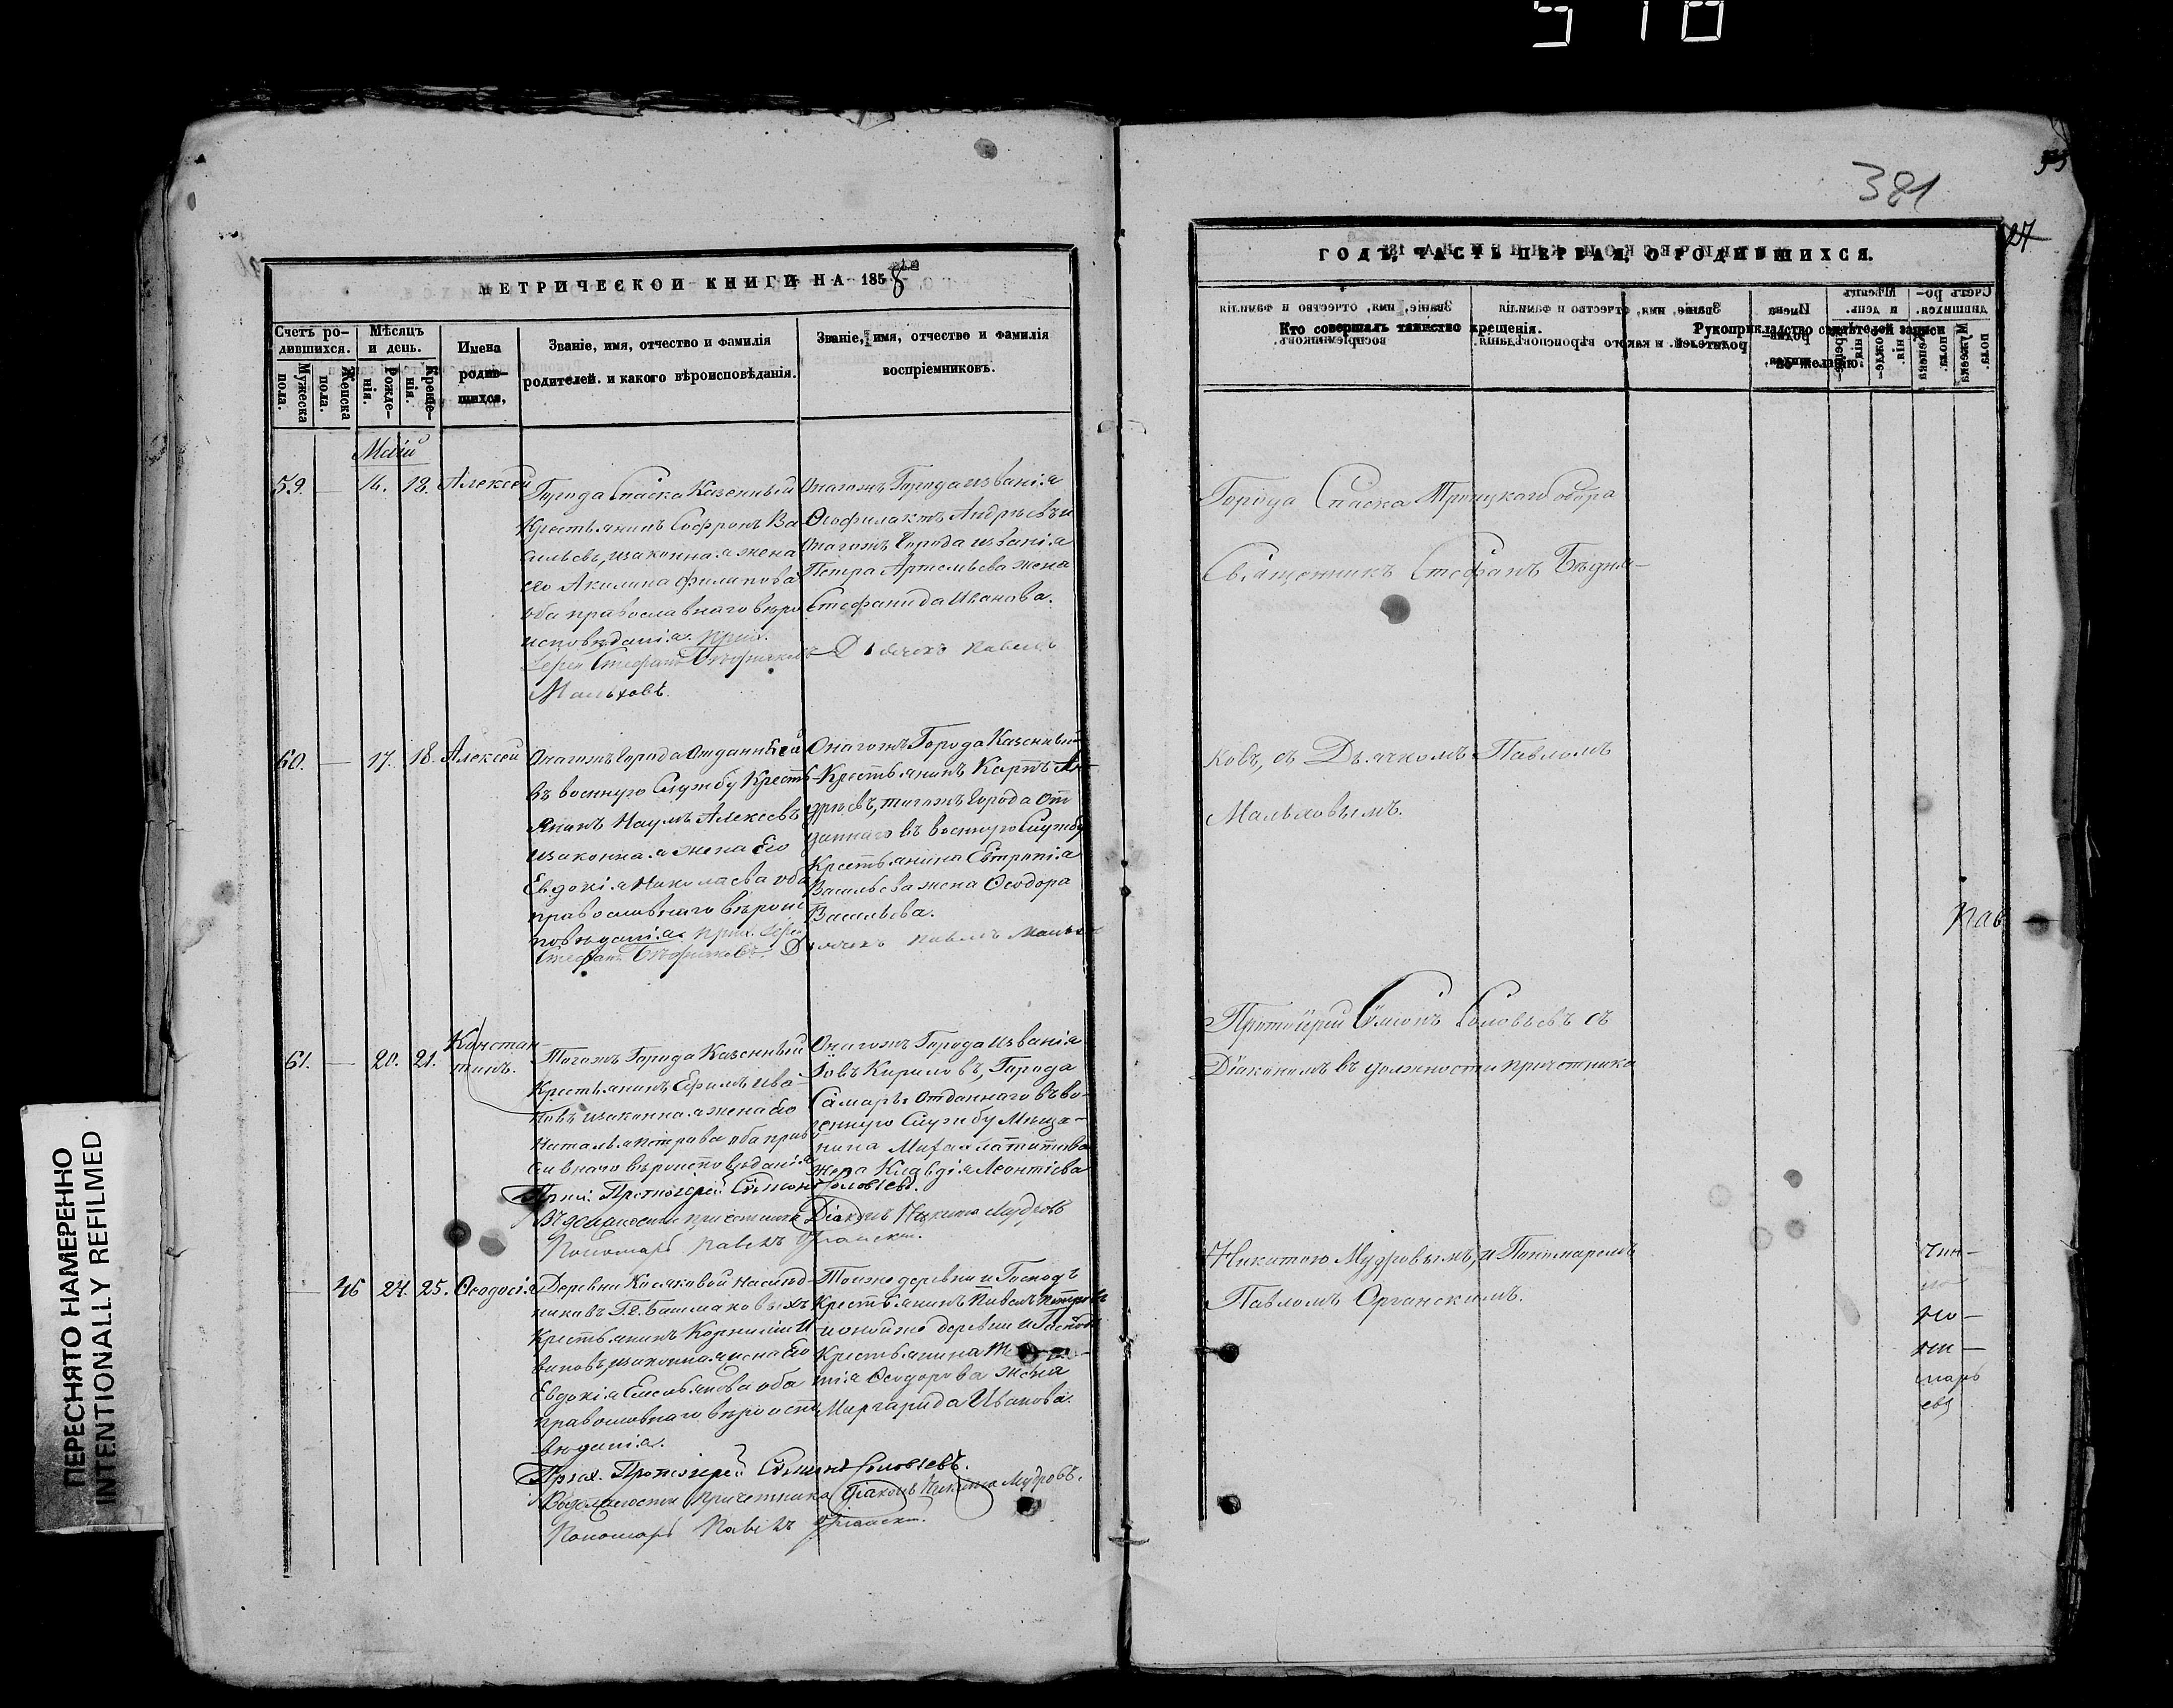 510
381
27
МЕТРИЧЕСКОЙ КНИГИ НА 1858
Счетъ ро-
дившихся.
Мужеска
пола.
Женска
пола.
Мѣсяцъ
и день.
Рожде-
нія.
Креще-
нія.
Имена
родив-
шихся,
Званіе, имя, отчество и фамилія
родителей. и какого вѣроисповѣданія.
Званіе, имя, отчество и фамилія
воспріемниковъ.
Маій
59. — 16. 18. Алексей
Города Спаска Казенный
Крестьянинъ Софронъ Ва
сильевъ, изаконная жена
его Акилина Филипова
оба православнаго вѣро
исповѣданія. Прих.
Іерей Стефанъ Бѣдняковъ
Дьячекъ Павелъ
Мальховъ.
Онагожъ Города изванія
Ѳеофилактъ Андрьевъ и
Онагожъ Города изванія
Петра Артемьева жена
Стефанида Иванова.
60. — 17. 18. Алексей
Онагожъ Города Отданный
въ военную Службу Кресть
янинъ Наумъ Алексевъ
изаконная жена Его
Евдокія Николаева оба
православнаго вѣроис
повѣданія. Прих. Іерей
Стефанъ Бѣдняковъ. Дьячекъ Павелъ
Онагожъ Города Казенный
Крестьянинъ Карпъ Ан-
дрѣевъ, тагожъ Города От
даннаго въ военную Службу
Крестьянина Евтропія
Васильева жена Ѳеодора
Васильева.
61. — 20. 21. Констан-
тинъ.
Тогожъ Города Казенный
Крестьянинъ Ефимъ Ива-
новъ изаконная жена Его
Наталья Петрова оба прав
славнаго вѣроисповѣданія
Прих. Протоіерей Сѵмеонъ Соловьевъ.
Въ должности причетника Діаконъ Никита Мудровъ
Пономарь Павелъ Органскій.
Онагожъ Города изванія
Іовъ Кириловъ, Города
Самары Отданнаго въ во-
енную Службу Мѣща-
нина
жена Клавдія Леонтіева
— 46 24. 25. Ѳеодосія
Деревни Косяковой наслѣд-
никовъ Г.г. Башмаковыхъ
Крестьянинъ Корнилій И
вановъ, изаконная жена Его
Евдокія Емельянова оба
православнаго вѣроиспо
вѣданія.
Прих. Протоіерей Сѵмеонъ Соловьевъ.
Въ должности Причетника Діаконъ Никита Мудровъ.
Пономарь Павелъ Органскій.
Тоиже деревни и Господъ
Крестьянинъ Павелъ Петровъ
и онойже деревни и Господъ
Крестьянина
Ѳеодорова жена
Маргарида Иванова.
ГОДЪ, ЧАСТЬ ПЕРВАЯ, О РОДИВШИХСЯ.
Кто совершалъ таинство крещенія.
Рукоприкладство свидѣтелей записи
по желанію.
Города Спаска Троицкаго Собора
Священникъ Стефанъ Бѣдня-
ковъ, съ Дьячкомъ Павломъ
Мальховымъ.
Протоіерей Сѵмеонъ Соловьевъ съ
Діакономъ въ должности причетника
Никитою Мудровымъ, и Пономаремъ
Павломъ Органскимъ.
ПЕРЕСНЯТО НАМЕРЕННО
INTENTIONALLY REFILMED